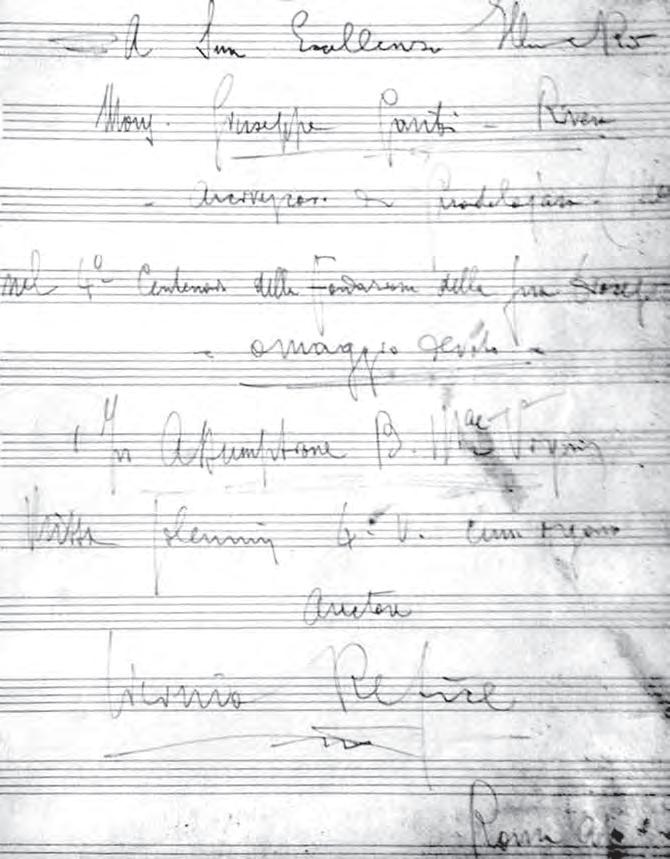 A Sua Eccellenza Ill.ma e Rev
Mons. Giuseppe Garibi - Rivera
- Arcivescovo di Guadalajara -
nel 4º Centenario della Fondazione della sua Diocesi
- omaggio devoto -
"In Assumptione B. Mae Virginis
Missa solemnis 4. V. cum organo
auctore
Licinio Refice
Roma